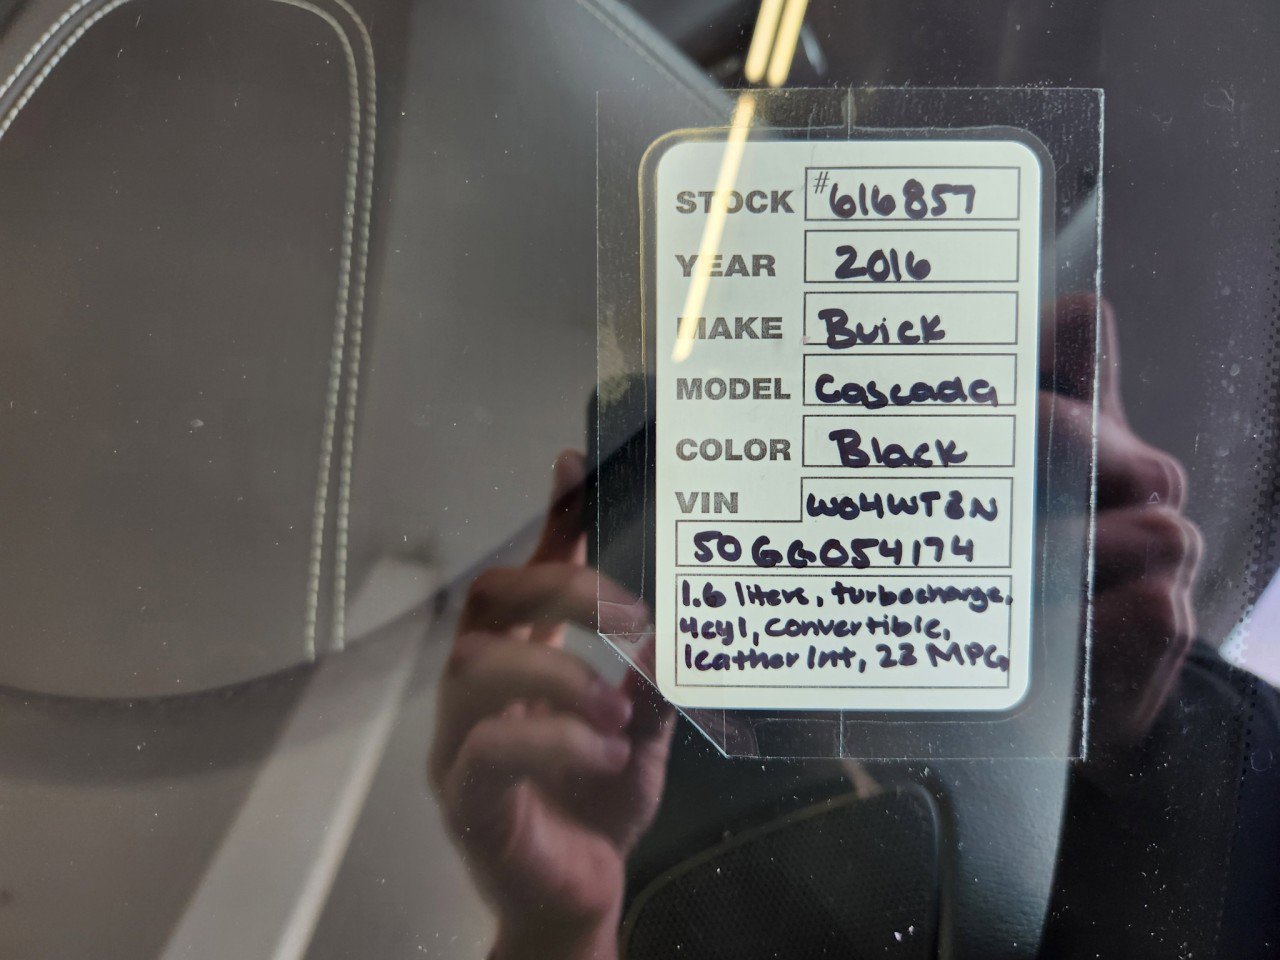 STOCK #616857
YEAR 2016
MAKE Buick
MODEL Cascada
COLOR Black
VIN W04WT3N
50GG054174
1.6 liters, turbocharge,
4cyl, convertible,
leather Int, 23 MPG